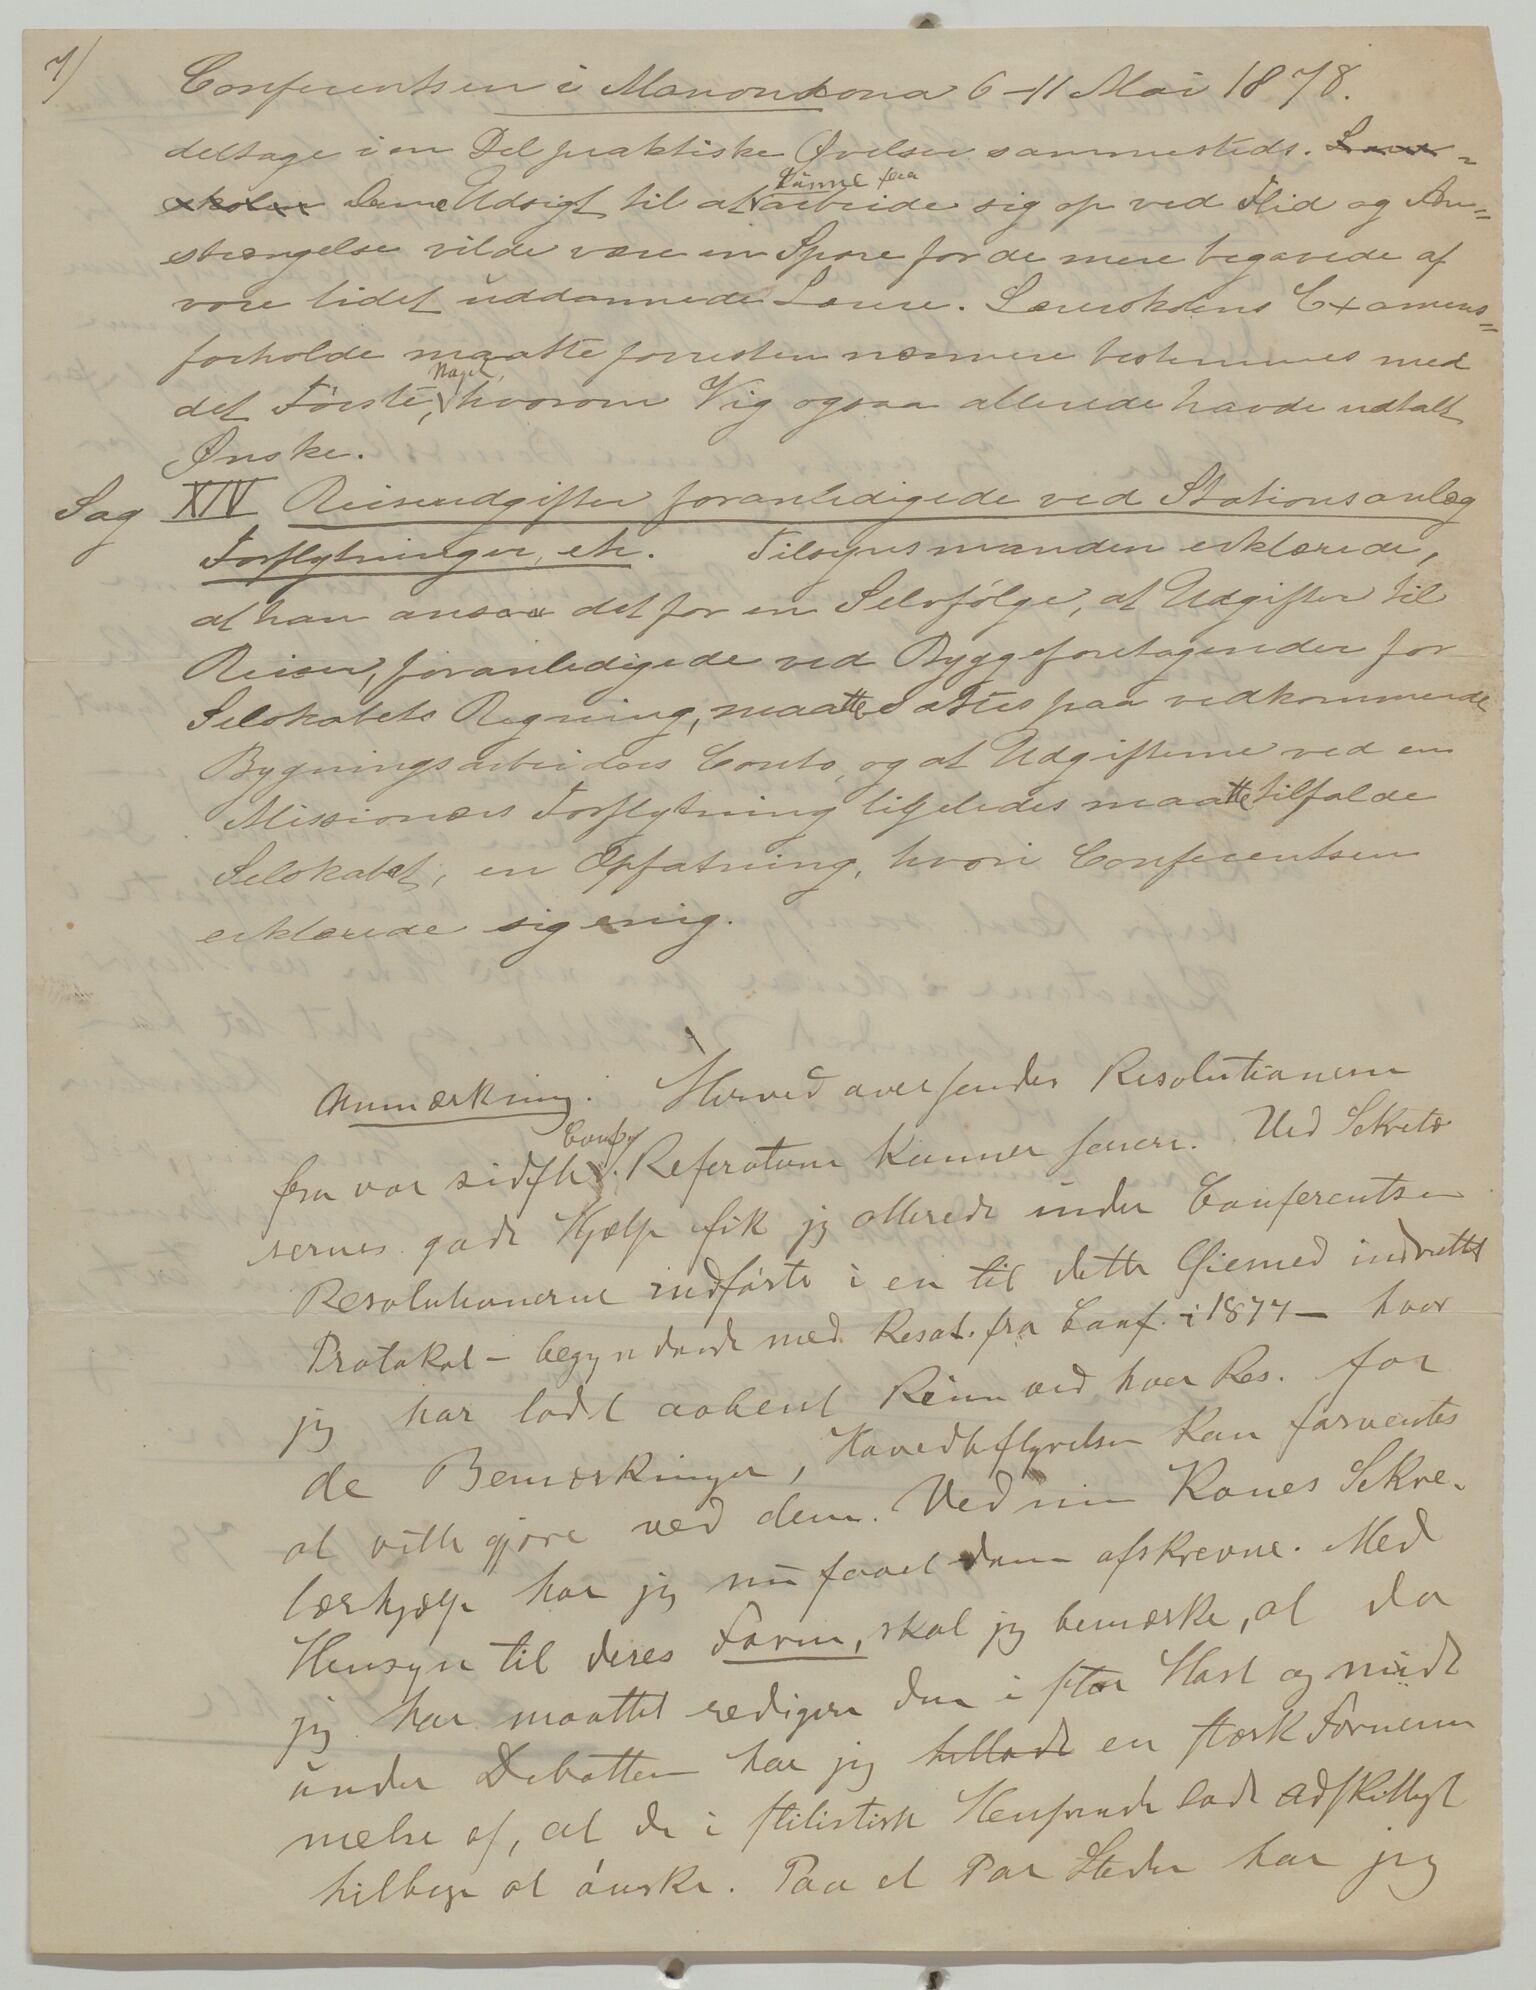 7)
Conferentsen i Manonsona 6-11 Mai 1878.
deltage i en Del praktiske Øvelser sammesteds. Lærer-
skolen Denne Udsigt til at kunne faa arbeide sig op ved Flid og An=
strængelse vilde være en Spore for de mere begavede af
vore lidet uddannede Lærere. Lærerskolens Examens=
forholde maatte forresten nærmere bestemmes med
det Første, Noget, hvorom Vig ogsaa allerede havde udtalt
Ønske.
Sag XIV Reiseudgifter foranledigede ved Stationsanlæg
Forflytninger, etc. Tilsynsmanden erklærede,
at han ansaa det for en Selvfølge, at Udgifter til
Reiser, foranledigede ved Byggeforetagender for
Selskabets Regning, maatte sættes paa vedkommende
Bygningsarbeiders Conto, og at Udgifterne ved en
Missionærs Forflytning ligeledes maatte tilfalde
Selskabet, en Opfatning, hvori Conferentsen
erklærede sig enig.
Anmærkning. Herved oversendes Resolutionerne
fra vor sidste Conf. Referaterne kommer senere. Ved Sekretæ
rernes gode Hjælp fik jeg allerede under Conferentsen
Resolutionerne indførte i en til dette Øiemed indrettet
Protokol - begyndende med Resol. fra Conf. i 1877 - hvor
jeg har ladt aabent Rum ved hver Res. for
de Bemærkninger, Hovedbestyrelsen kan forventes
at ville gjøre ved dem. Ved min Kones Sekre-
tærhjælp har jeg nu faaet dem afskrevne. Med
Hensyn til deres Form, skal jeg bemærke, at da
jeg har maattet redigere dem i stor Hast og midt
under Debatten har jeg en stærk Fornem
melse af, at de i stilistisk Henseende lade adskilligt
tilbage at ønske. Paa et Par Steder har jeg